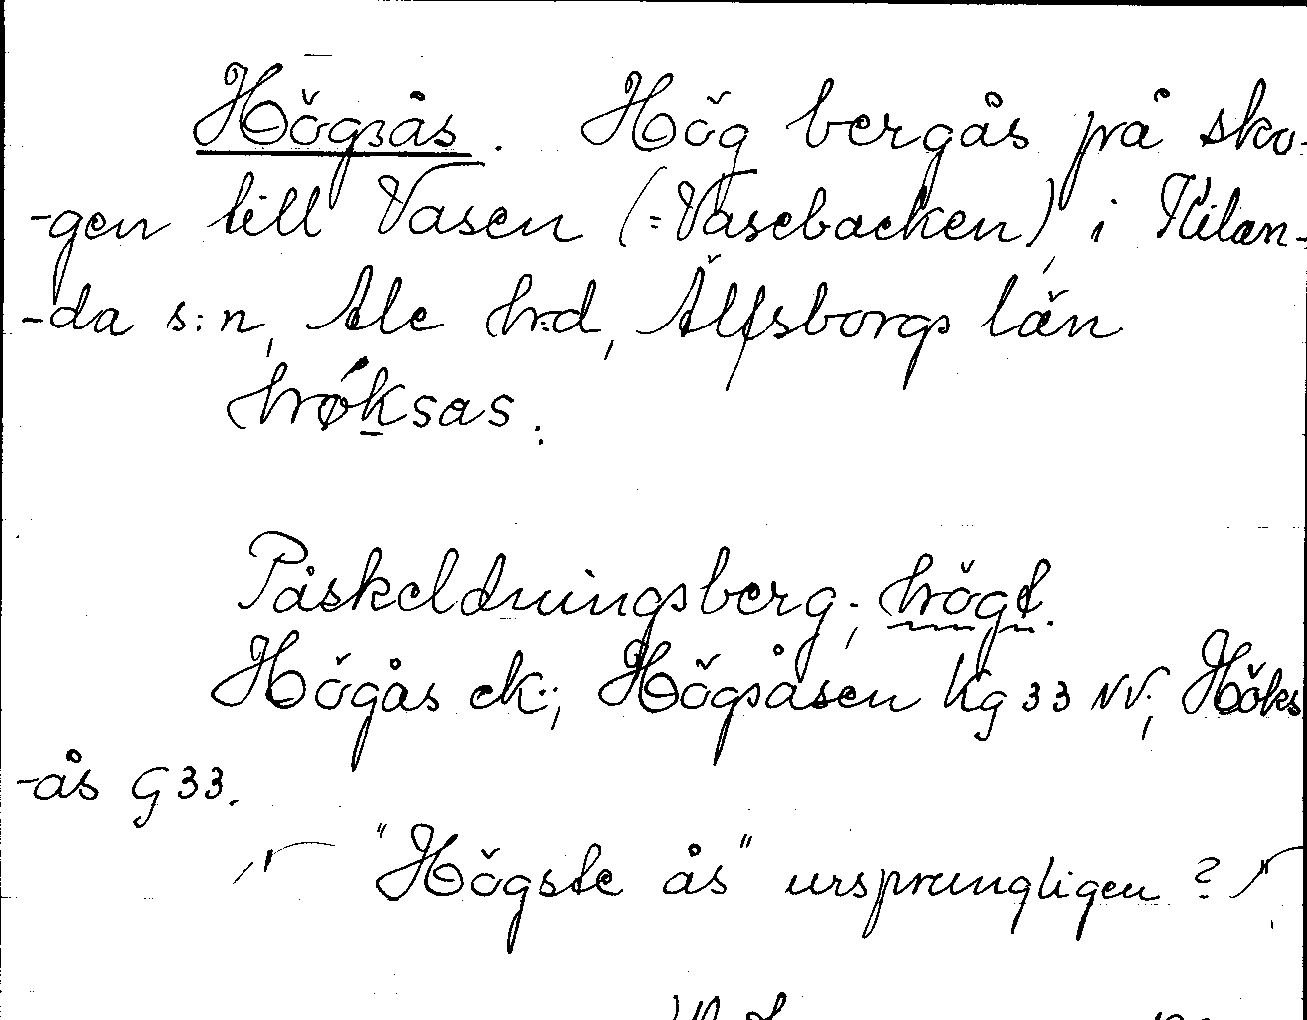 Högsås. Hög bergås på sko-
-gen till Vasen (=Vasebacken) i Kilan-
-da s:n, Ale h:d, Älfsborgs län
høksas.
Påskeldningsberg; högt.
Högås ek.; Högsåsen Kg 33 NV; Höks
-ås G 33.
"Högste ås" ursprungligen?